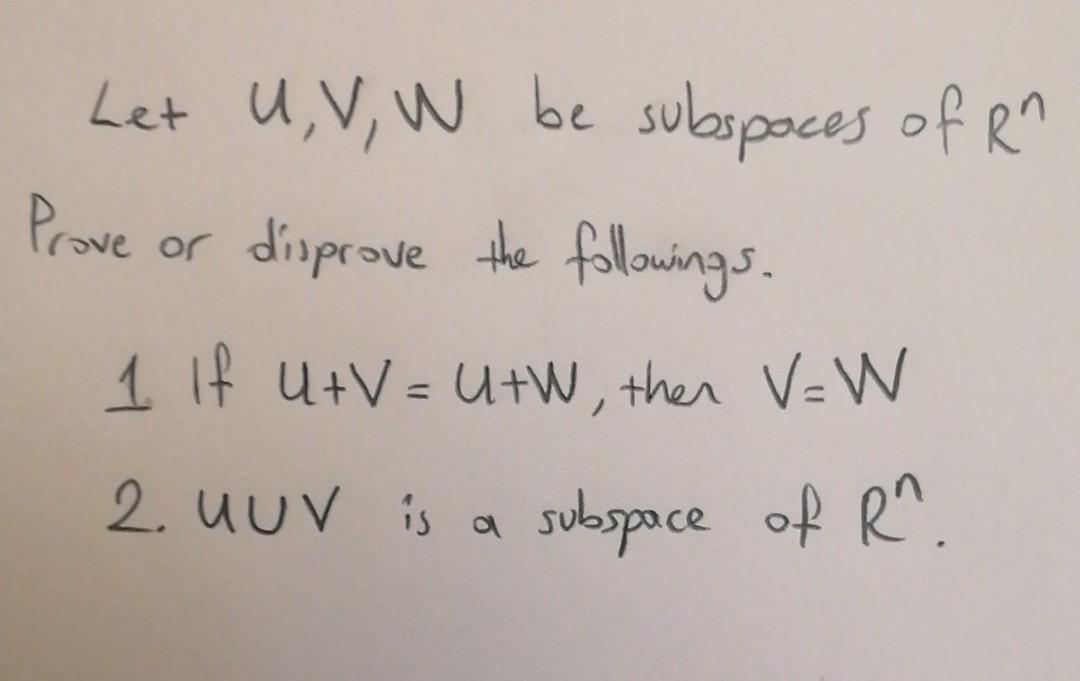 Let U, V, W be subspaces of Rⁿ
Prove or disprove the followings.
1 If U+V = U+W, then V=W
2. U∪V is a subspace of Rⁿ.